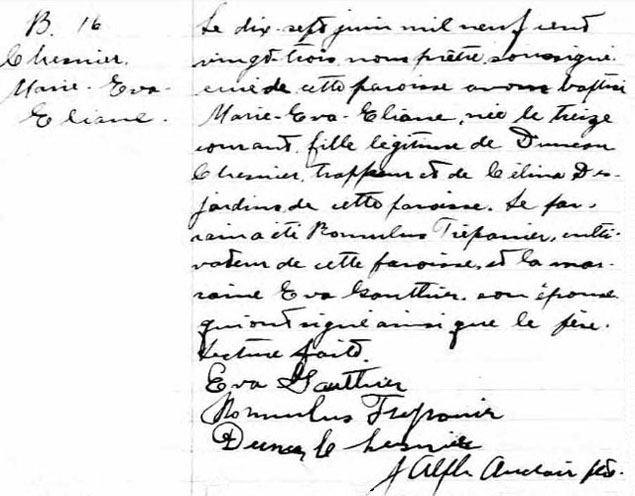 B. 16
Chesnier.
Marie-Eva-
Eliane.
Le dix-sept juin mil neuf cent
vingt-trois, nous prêtre soussigné
curé de cette paroisse avons baptisé
Marie-Eva-Eliane, née le treize
courant, fille légitime de Duncan
Chesnier, trappeur et de Célina Des-
jardins, de cette paroisse. Le par-
rain a été Romulus Trépanier, culti-
vateur de cette paroisse, et la mar-
raine Eva Gauthier, son épouse
qui ont signé ainsi que le père.
Lecture faite.
Eva Gauthier
Romulus Trépanier
Dunca Chesnier
J Alph. Auclair ptre.